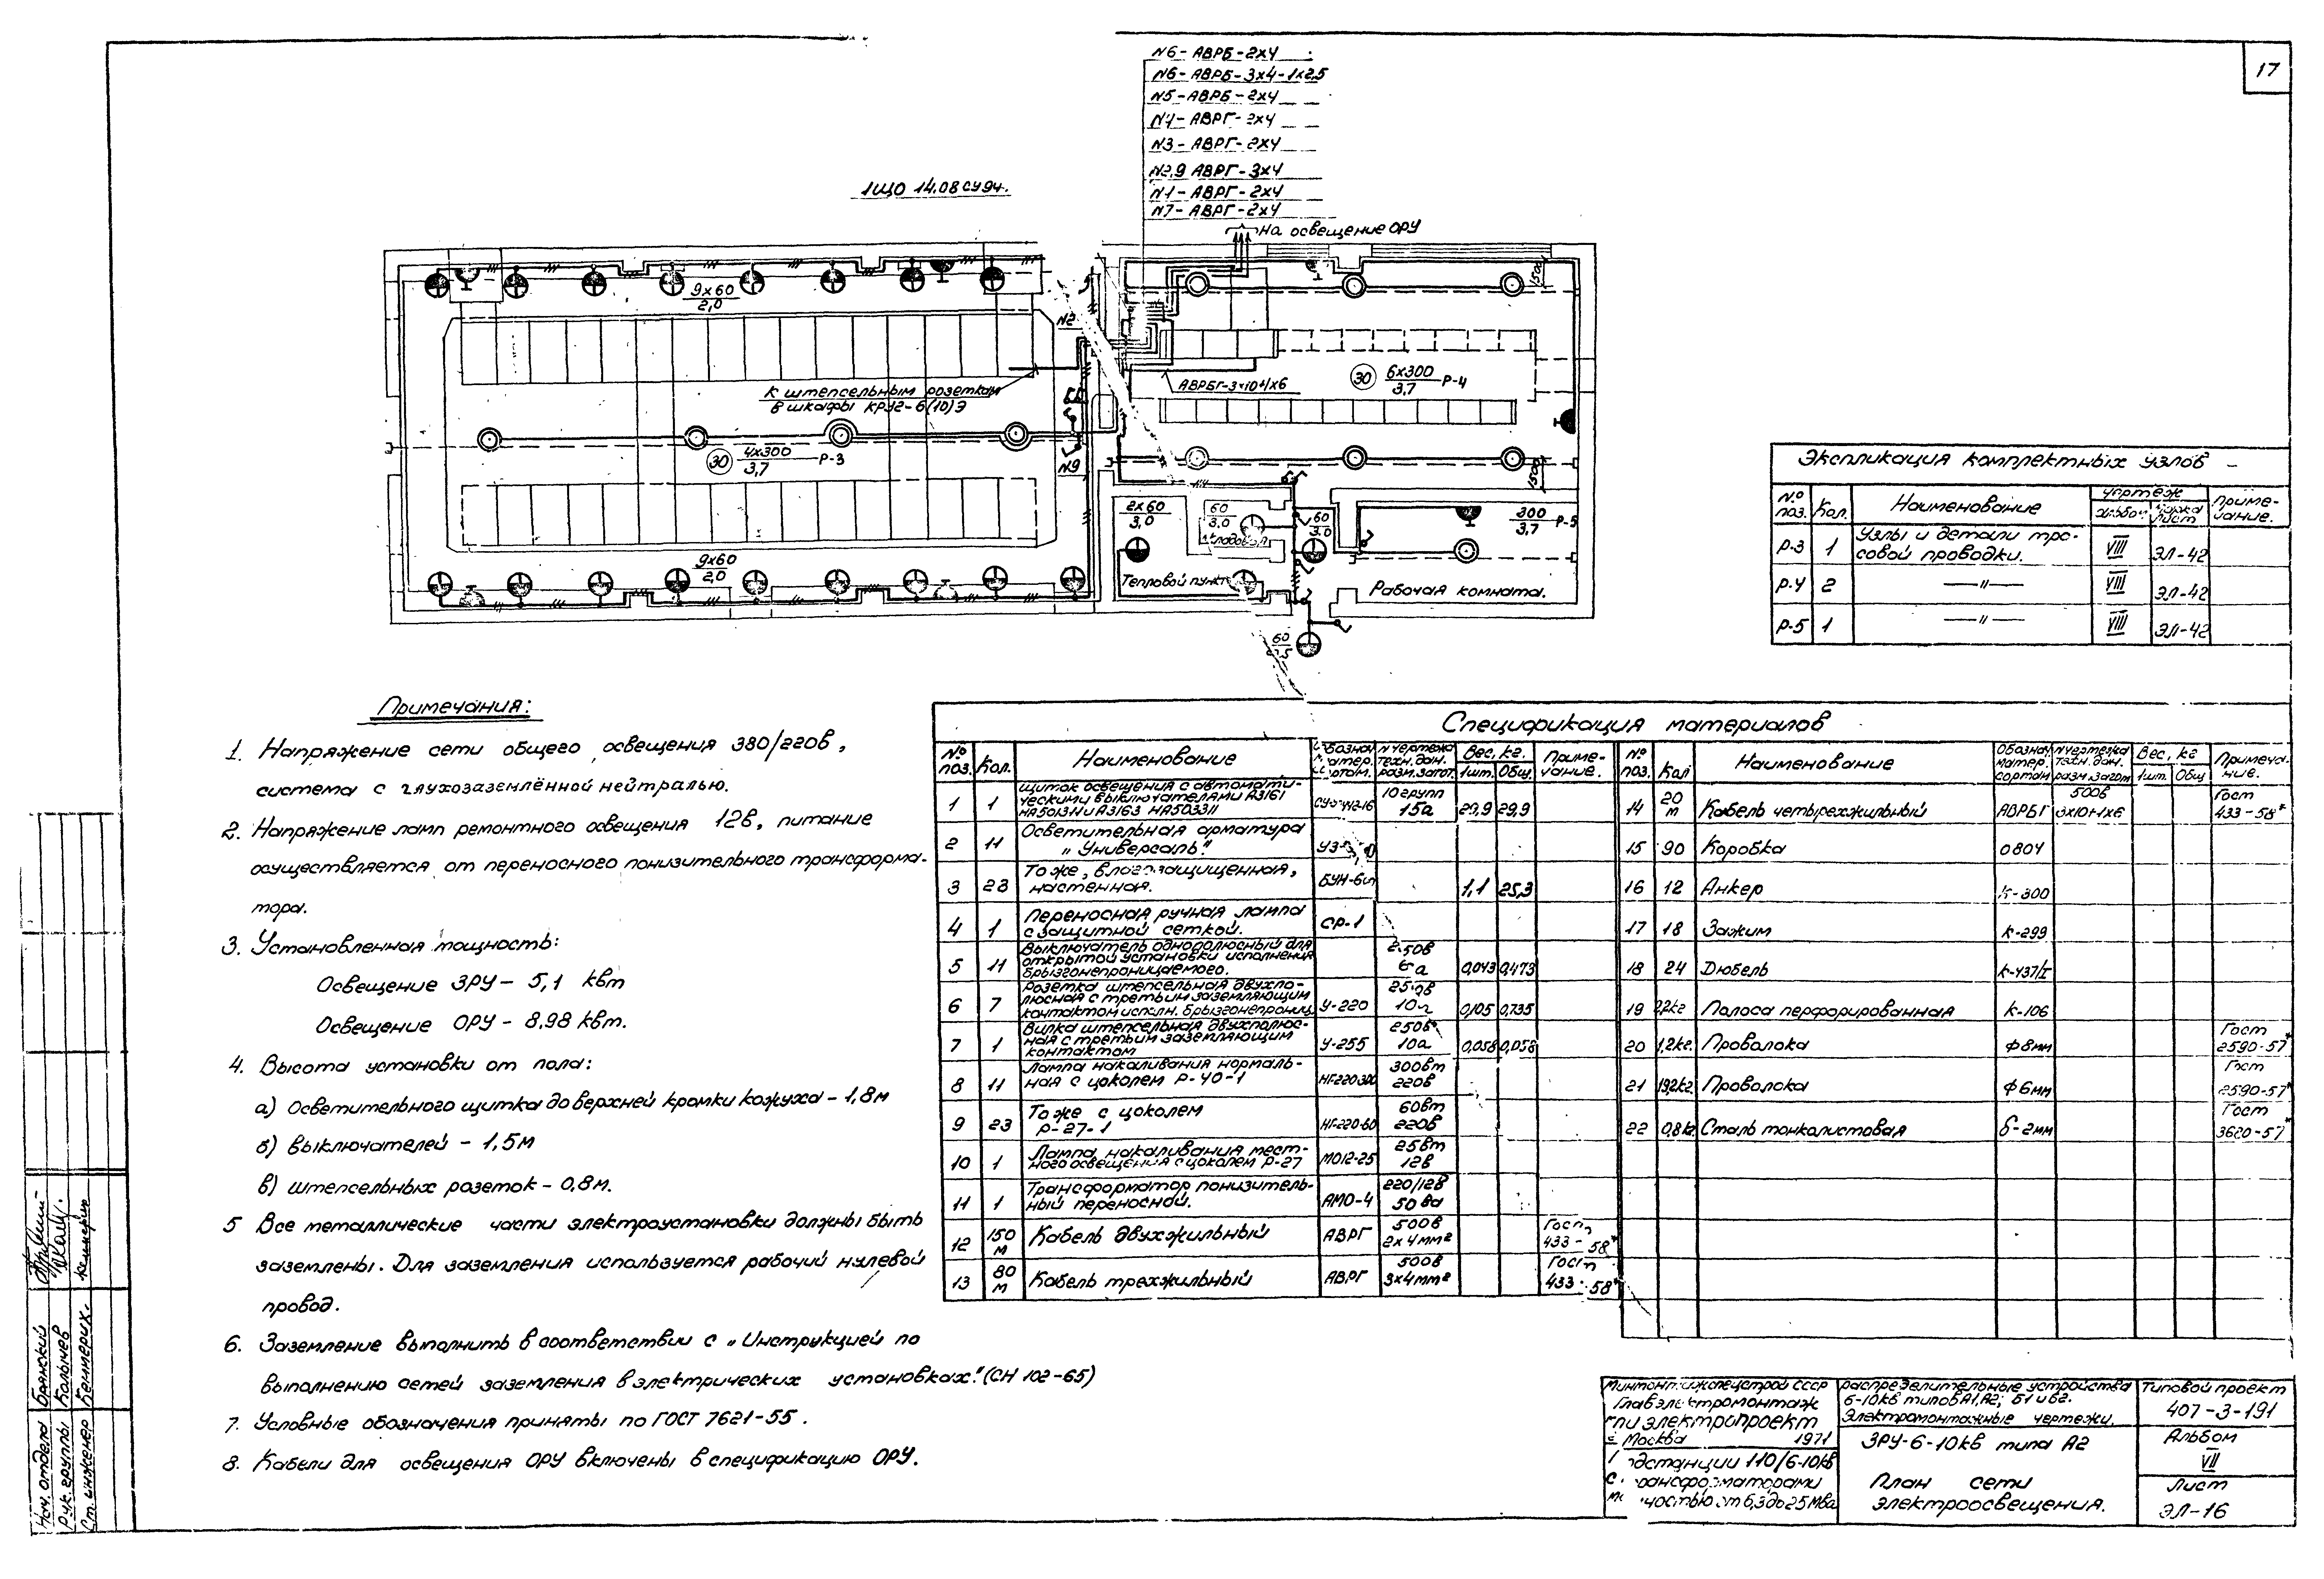 17
N6- АВРБ-2х4
N6- АВРБ-3х4-1х2,5
N5-АВРБ-2х4
N4- АВРГ-2х4
N3- АВРГ-2х4
N2,9 АВРГ-3х4
N1- АВРГ-2х4
N7- АВРГ-2х4
1ЩО 14.08СУ94.
На освещение ОРУ
9х60
2,0
N2
1500
К штепсельным розеткам
в шкафы КРУ2-6(10)Э
АВРБГ-3х10+1х6
30 6х300 Р-4
3,7
30 4х300 Р-3
3,7
N9
1500
2х60
3,0
60
3,0
Кладовая
60
3.0
300 Р-5
3,7
9х60
2,0
Тепловой пункт
Рабочая комната.
60
2,5
Экспликация комплектных узлов
№ поз. Кол. Наименование чертеж альбом марка лист Приме-чание.
Р-3 1 Узлы и детали тро-совой проводки. VIII ЭЛ-42
Р-4 2 —"— VIII ЭЛ-42
Р-5 1 —"— VIII ЭЛ-42
Примечания:
1. Напряжение сети общего освещения 380/220в,
система с глухозаземлённой нейтралью.
2. Напряжение ламп ремонтного освещения 12в, питание
осуществляется от переносного понизительного трансформа-
тора.
3. Установленная мощность:
Освещение ЗРУ- 5,1 квт
Освещение ОРУ- 8,98 квт.
4. Высота установки от пола:
а) Осветительного щитка до верхней кромки кожуха-1,8м
б) выключателей - 1,5м
в) штепсельных розеток-0,8м.
5 Все металлические части электроустановки должны быть
заземлены. Для заземления используется рабочий нулевой
провод.
6. Заземление выполнить в соответствии с „Инструкцией по
выполнению сетей заземления в электрических установках." (СН 102-65)
7. Условные обозначения приняты по ГОСТ 7621-55.
8. Кабели для освещения ОРУ включены в спецификацию ОРУ.
Спецификация материалов
№ поз. Кол. Наименование Обознач. матер. сортам. N чертежа техн. дан. разм. загот. Вес, кг. 1шт. Общ. Приме-чание.
1 1 Щиток освещения с автомати-ческими выключателями А3161 НА50131Н и А3163 НА50331Н 10 групп 15а 29,9 29,9
2 11 Осветительная арматура „Универсаль."
3 23 То же, влагозащищенная, настенная. БУН-60 1,1 25,3
4 1 Переносная ручная лампа с защитной сеткой. СР-1
5 11 Выключатель однополюсный для открытой установки исполнения брызгонепроницаемого. 250в 6а 0,043 0,473
6 7 Розетка штепсельная двухпо-люсная с третьим заземляющим контактом исполн. брызгонепрониц. У-220 250в 10а 0,105 0,735
7 1 Вилка штепсельная двухполюс-ная с третьим заземляющим контактом У-255 250в 10а 0,058 0,058
8 11 Лампа накаливания нормаль-ная с цоколем Р-40-1 НГ-220-300 300вт 220в
9 23 То же с цоколем Р-27-1 НГ-220-60 60вт 220в
10 1 Лампа накаливания мест-ного освещения с цоколем Р-27 МО12-25 25вт 12в
11 1 Трансформатор понизитель-ный переносной. АМО-4 220/12в 50ва
12 150 м Кабель двухжильный АВРГ 500в 2х4мм² Гост 433-58*
13 80 м Кабель трехжильный АВРГ 500в 3х4мм² Гост 433-58*
№ поз. Кол Наименование Обознач. матер. сортам N чертежа техн. дан. разм. загот Вес, кг 1шт. Общ Примеча-ние.
14 20 м Кабель четырехжильный АВРБГ 500в 3х10+1х6 Гост 433-58*
15 90 Коробка 0804
16 12 Анкер К-300
17 18 Зажим К-299
18 24 Дюбель К-437/I
19 2,2кг Полоса перфорированная К-106
20 1,2кг. Проволока Ф8мм Гост 2590-57*
21 19,2кг. Проволока Ф6мм Гост 2590-57*
22 0,8кг. Сталь тонколистовая б-2мм Гост 3620-57*
Минмонтажспецстрой СССР
Главэлектромонтаж
ГПИ электропроект
г Москва 1971
Подстанции 110/6-10кв
с трансформаторами
мощностью от 6,3 до 25 Мва
Распределительные устройства
6-10кв типов А1,А2; Б1 и Б2.
Электромонтажные чертежи.
ЗРУ-6-10кв типа А2
План сети
электроосвещения.
Типовой проект
407-3-191
Альбом
VII
Лист
ЭЛ-16
Нач. отдела Брянский
Рук. группы Колычев
Ст. инженер Кеммерих.